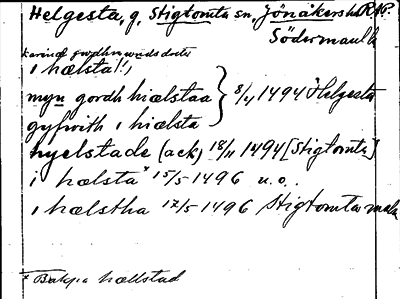 Helgesta, g. Stigtomta sn. Jönåkers hd RAp.
Södermanl
i hælsta(!)
myn gordh hiælstaa } 8/4 1494 Helgesta
gyfwith i hiælsta
hyelstade (ack) 18/11 1494 [Stigtomta]
i hælsta* 15/5 1496 u.o.
i hælstha 17/5 1496 Stigtomta
* Bakpå hællstad